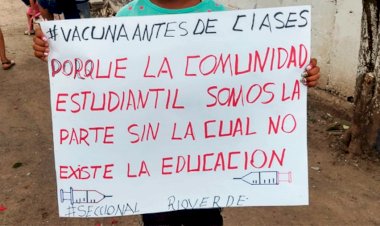 #VACUNA ANTES DE CLASES
PORQUE LA COMUNIDAD
ESTUDIANTIL SOMOS LA
PARTE SIN LA CUAL NO
EXISTE LA EDUCACION
#SECCIONAL RIOVERDE